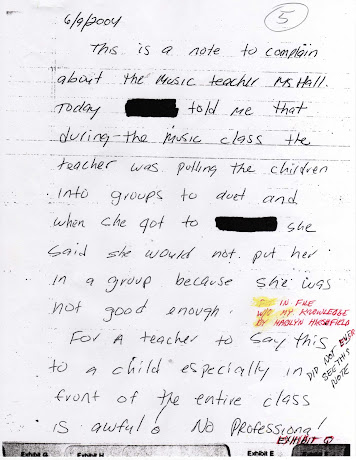 6/9/2004
5
This is a note to complain
about the Music teacher Ms Hall.
Today told me that
during the Music class the
teacher was pulling the children
into groups to duet and
when she got to she
said she would not put her
in a group because she was
not good enough.
IN FILE
W/O MY KNOWLEDGE
BY
For A teacher to say this
to a child especially in
front of the entire class
is awful. No Professional
DID NOT EVER
SEE THIS
NOTE
EXHIBIT G
Exhibit G
Exhibit H
Exhibit E